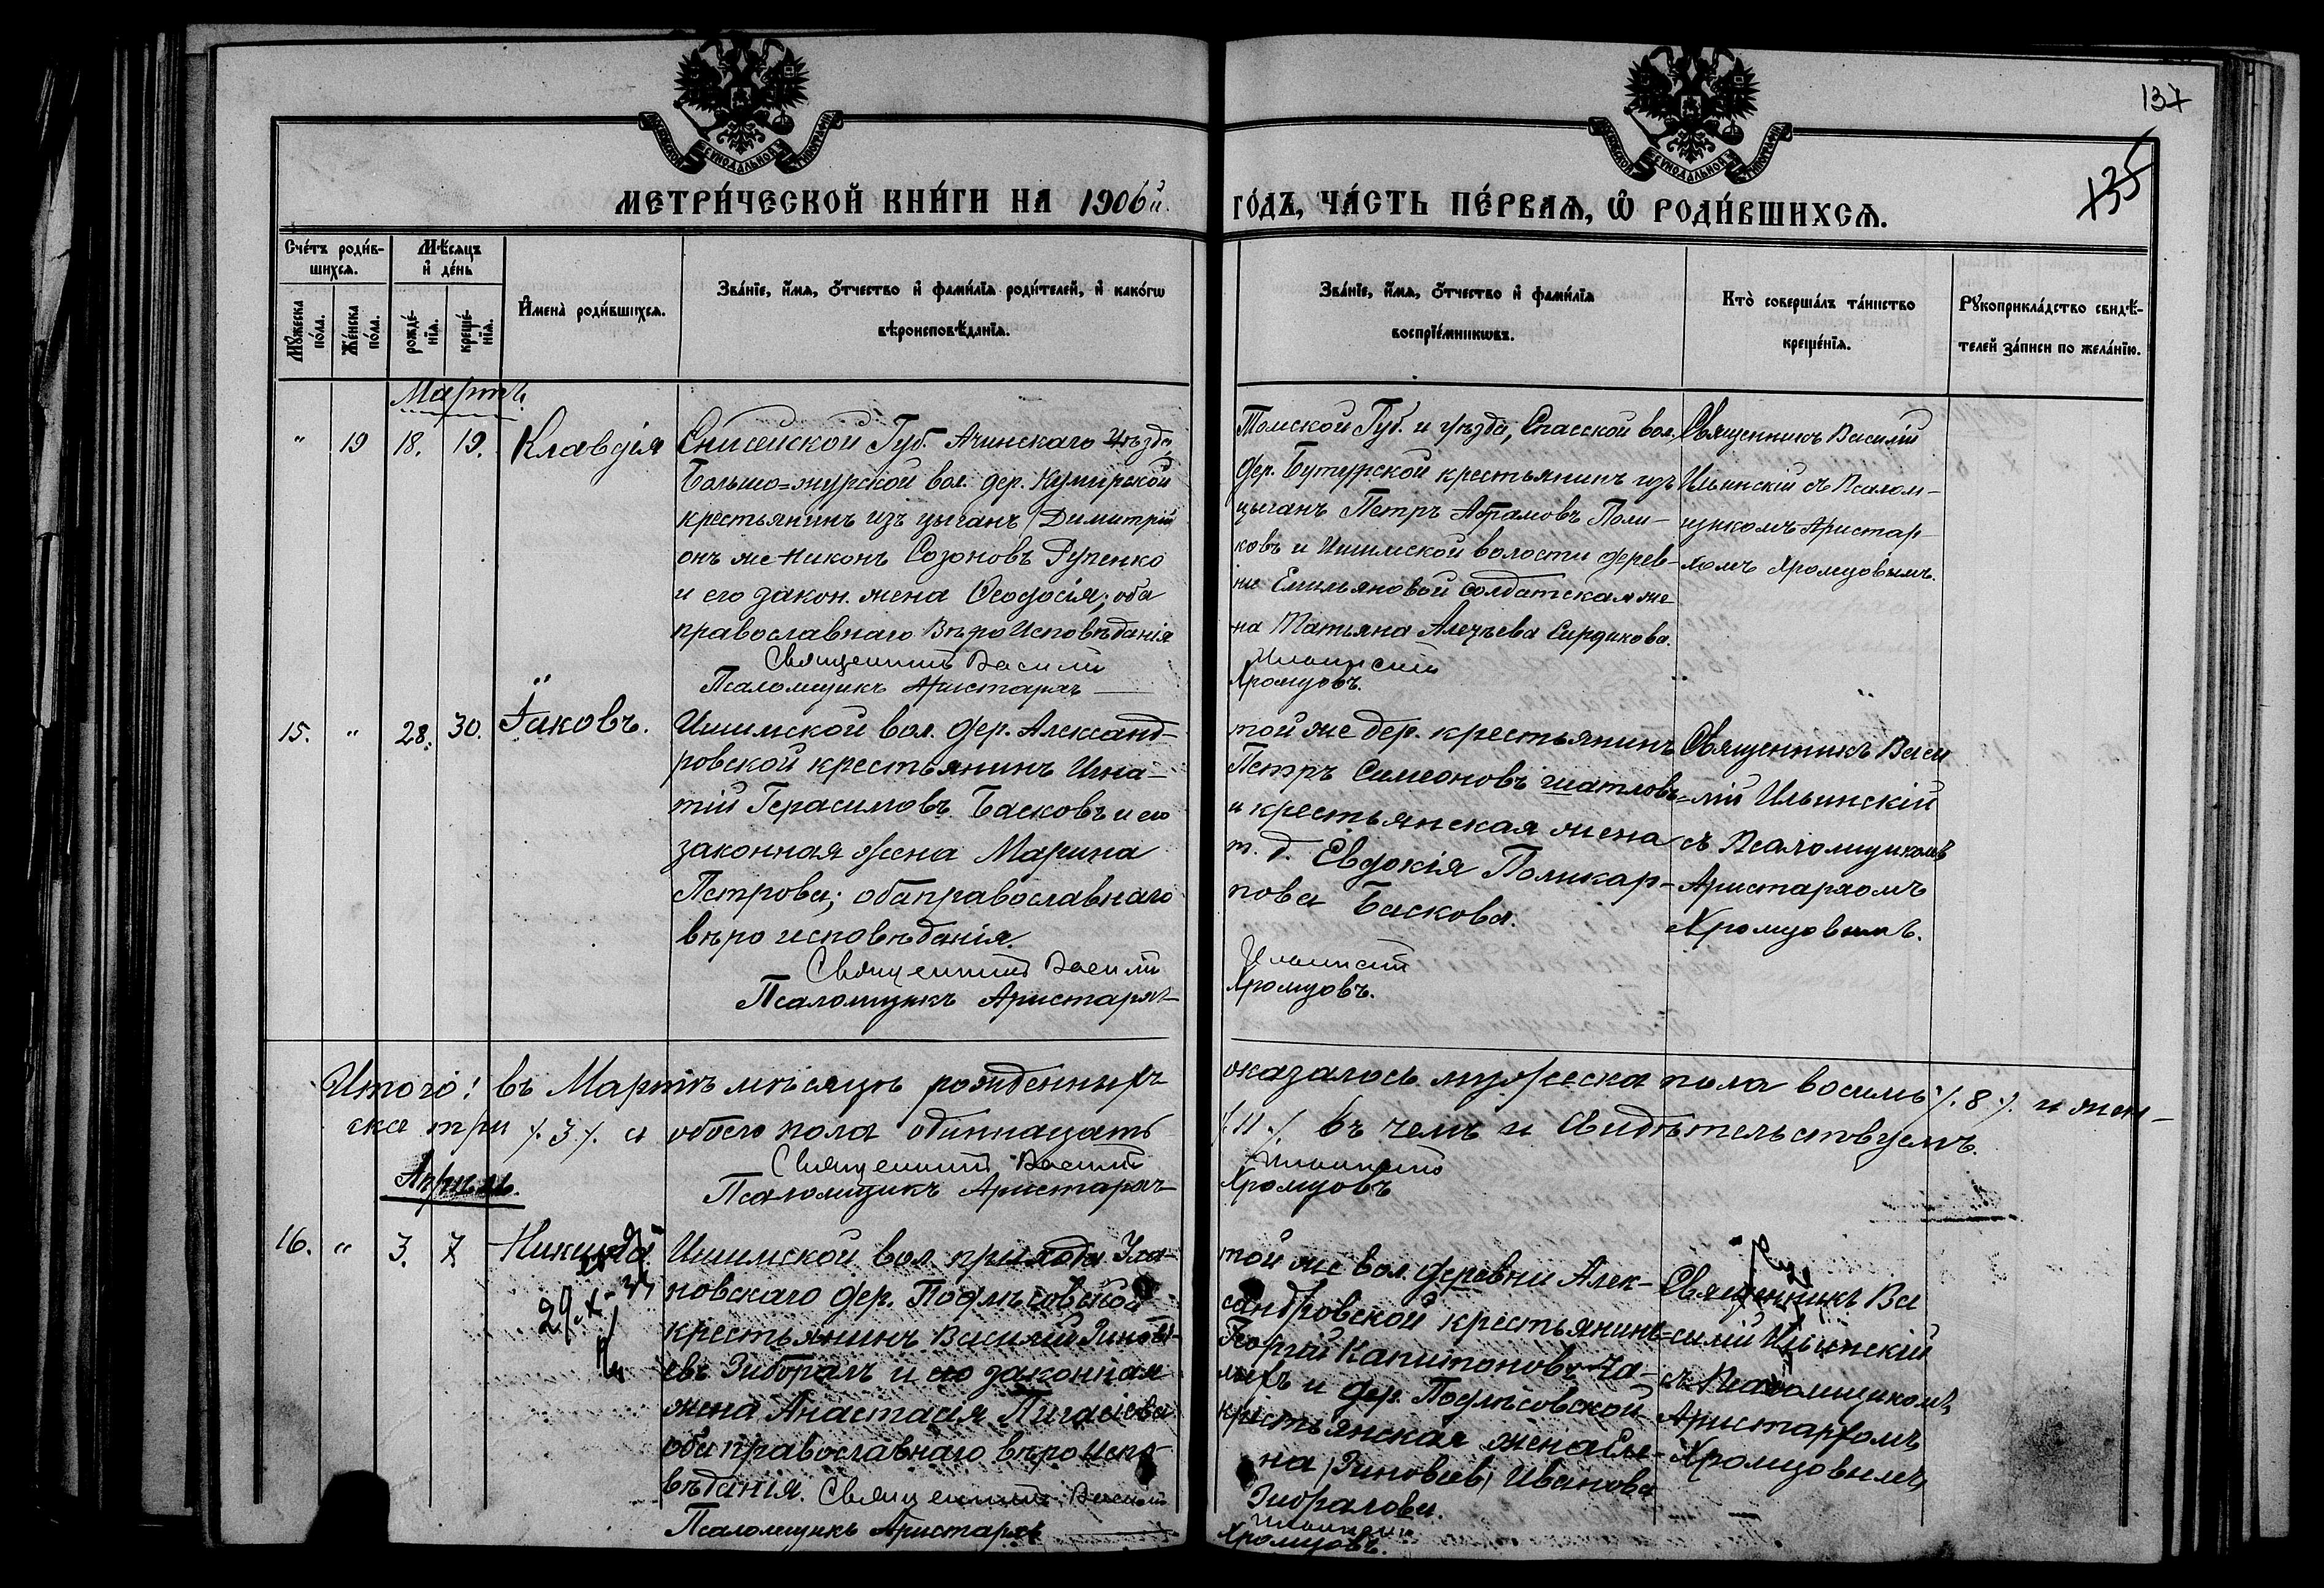 137
135
МОСКОВСКОЙ СѴНОДАЛЬНОЙ ТИПОГРАФІИ
МОСКОВСКОЙ СѴНОДАЛЬНОЙ ТИПОГРАФІИ
МЕТРИ́ЧЕСКОЙ КНИ́ГИ НА 1906й. ГО́ДЪ, ЧА́СТЬ ПЕ́РВАѦ, Ѡ҆ РОДИ́ВШИХСѦ.
Сче́тъ роди́в-
шихсѧ.
Мꙋ́жеска по́ла.
Же́нска по́ла.
Мѣ́сѧцъ
и҆ де́нь
рожде́-
нїѧ.
креще́-
нїѧ.
И҆мена̀ роди́вшихсѧ.
Зва́нїе, и҆́мѧ, ѻ҆́тчество и҆ фами́лїѧ роди́телей, и҆ како́гѡ
вѣроисповѣ́данїѧ.
Зва́нїе, и҆́мѧ, ѻ҆́тчество и҆ фами́лїѧ
воспрїе́мникѡвъ.
Кто̀ соверша́лъ та́инство
креще́нїѧ.
Рꙋкоприкла́дство свидѣ́-
телей за́писи по жела́нїю.
Мартъ.
" 19 18. 19. Клавдія
Енисейской Губ. Ачинскаго Уѣзда,
Больше=
вол. дер.
крестьянинъ изъ цыганъ /Димитрій
онъ же Никонъ Созоновъ Рупенко
и его закон. жена Ѳеодосія; оба
православнаго ВѣроИсповѣданія
Священникъ Василій
Псаломщикъ Аристархъ
Томской Губ. и уѣзда, Спасской вол.
дер. крестьянинъ изъ
цыганъ Петръ Абрамовъ Поли-
ковъ и Ишимской волости дерев-
ни Емельяновой солдатская же-
на Татьяна
Ильинскій
Хромцовъ.
Священникъ Василій
Ильинскій съ Псалом-
щикомъ Аристар-
хомъ Хромцовымъ.
15. " 28. 30. Іаковъ.
Ишимской вол. дер. Александ-
ровской крестьянинъ Игна-
тій Герасимовъ Басковъ и его
законная жена Марина
Петрова; оба православнаго
вѣроисповѣданія.
Священникъ Василій
Псаломщикъ Аристархъ
той же дер. крестьянинъ
Петръ Симеоновъ Шатловъ
и крестьянская жена
т. д. Евдокія Поликар-
пова Баскова.
Ильинскій
Хромцовъ.
Священникъ Васи
=лій Ильинскій
съ Псаломщикомъ
Аристархомъ
Хромцовымъ.
Итого: въ Мартѣ мѣсяцѣ рожденныхъ оказалось мужеска пола восемь ./. 8 ./. и жен-
ска три ./. 3 ./. а обоего пола одиннадцать ./. 11 ./. Въ чемъ и Свидѣтельствуемъ.
Священникъ Василій Ильинскій
Псаломщикъ Аристархъ Хромцовъ
Апрѣль.
16. " 3. 7
Ишимской вол. прихода Ула-
новскаго дер. Подлѣсовской
крестьянинъ Василій Зиновь-
евъ и его законная
жена Анастасія
оба православнаго вѣроиспо-
вѣданія. Священникъ Василій
Псаломщикъ Аристархъ
той же вол. деревни Алек-
сандровской крестьянинъ
Георгій Капитоновъ
и дер. Подлѣсовской
крестьянская жена Еле-
на /Зиновьев/ Иванова
Ильинскій
Хромцовъ.
Священникъ Ва
=силій Ильинскій
съ Псаломщикомъ
Аристархомъ
Хромцовымъ